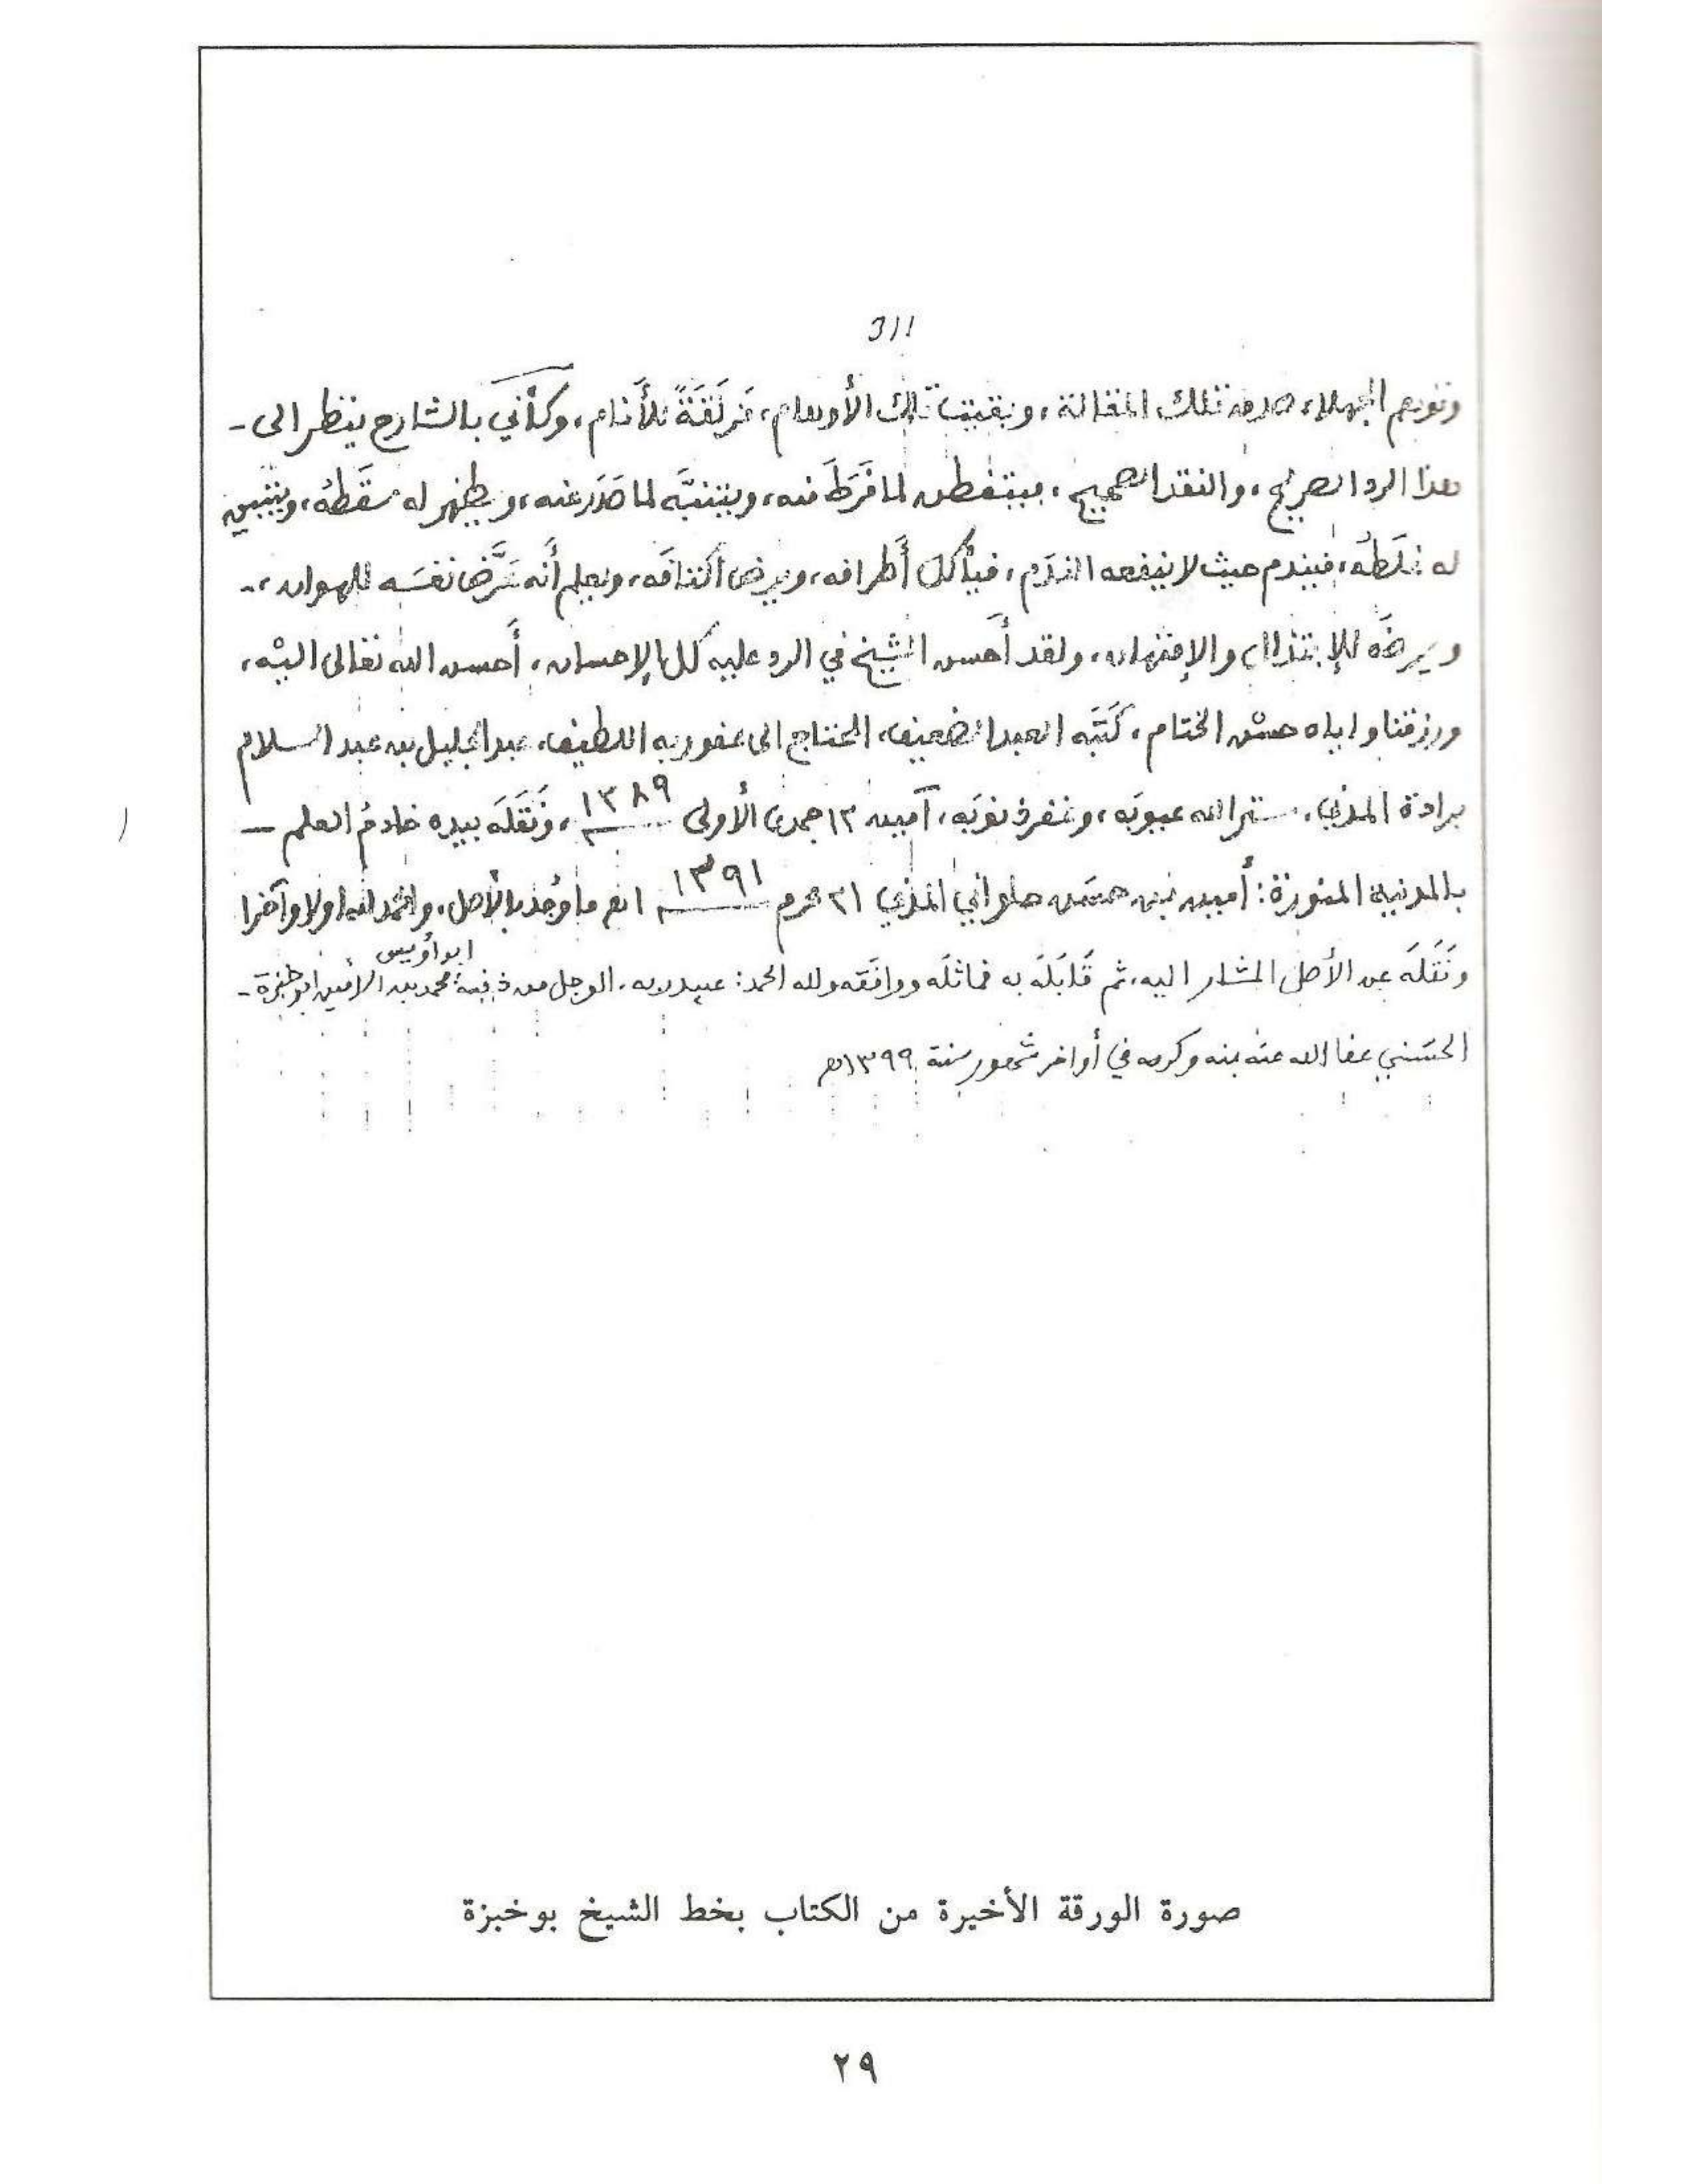 311
وتوهم الجهلاء صدق تلك المقالة، وبقيت تلك الأوهام، مَزلَقَةً للأَنام، وكأني بالشارح ينظر الى -
هذا الرد الصريح، والنقد الصحيح، فيتفطن لما فَرَطَ منه، ويتنبَّه لما صَدَر عنه، ويظهر له سقَطهُ، ويتبين
له غلَطهُ، فيندم حيث لا ينفعه الندَم، فيأكل أَطرافه، ويرض أكتافَه، ويعلم أَنه عَرَّض نفسَه للهوان، -
و للإبتذال والإمتهان، ولقد أَحسن الشيخ في الرد عليه كل الإحسان، أَحسن الله تعالى اليْه،
ورزقنا واياه حسْن الختام، كَتَبَه العبد الضعيف، المحتاج الى عفو ربه اللطيف، عبد الجليل بن عبد السلام
برادة المدني، ستر الله عيوبَه، وغفر ذنوبَه، آمين ١٢ جمدى الأولى ١٣٨٩، ونَقَلَه بيده خادمُ العلم —
بالمدينة المنورة: أمين بن حسَن حلواني المدني ٢١ محرم ١٣٩١ اهـ ما وُجد بالأصل، والحمد لله اولا وآخرا
ونَقَلَه عن الأصل المشار اليه، ثم قَابَلَه به فماثلَه ووافَقه ولله الحمد: عبيد ربه، الوجل من ذنبه: محمد بن الأمين ابو خبزة -
ابو أويس
الحسَني عفا الله عنه بمنه وكرمه في أواخر شهور سنة ١٣٩٩هـ
صورة الورقة الأخيرة من الكتاب بخط الشيخ بوخبزة
٢٩